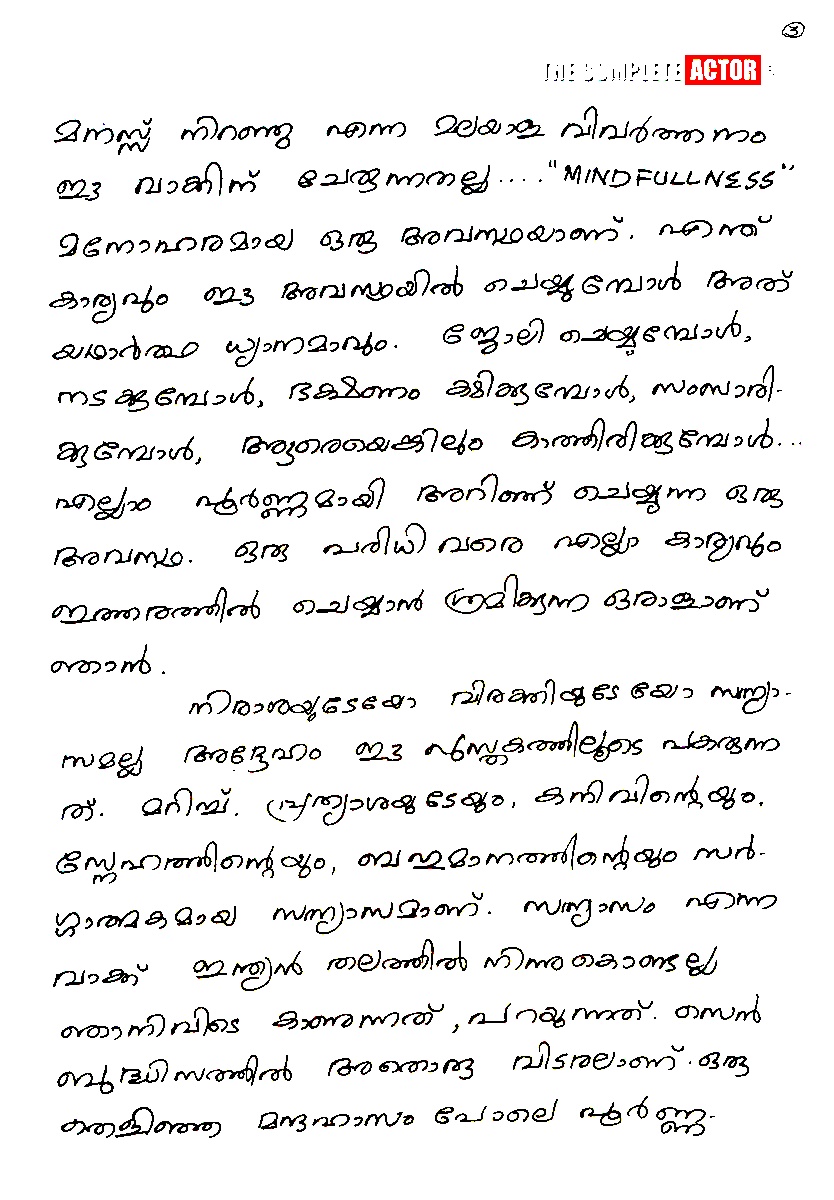 3
THE COMPLETE ACTOR
മനസ്സ് നിറഞ്ഞു എന്ന മലയാള വിവർത്തനം
ഈ വാക്കിന് ചേരുന്നതല്ല.... "MINDFULLNESS"
മനോഹരമായ ഒരു അവസ്ഥയാണ്. എന്ത്
കാര്യവും ഈ അവസ്ഥയിൽ ചെയ്യുമ്പോൾ അത്
യഥാർത്ഥ ധ്യാനമാവും. ജോലി ചെയ്യുമ്പോൾ,
നടക്കുമ്പോൾ, ഭക്ഷണം കഴിക്കുമ്പോൾ, സംസാരി-
ക്കുമ്പോൾ, ആരെയെങ്കിലും കാത്തിരിക്കുമ്പോൾ...
എല്ലാം പൂർണ്ണമായി അറിഞ്ഞ് ചെയ്യുന്ന ഒരു
അവസ്ഥ. ഒരു പരിധി വരെ എല്ലാ കാര്യവും
ഇത്തരത്തിൽ ചെയ്യാൻ ശ്രമിക്കുന്ന ഒരാളാണ്
ഞാൻ.
നിരാശയുടേയോ വിരക്തിയുടേയോ സന്ന്യാ-
സമല്ല അദ്ദേഹം ഈ പുസ്തകത്തിലൂടെ പകരുന്ന
ത്. മറിച്ച്. പ്രത്യാശയുടേയും, കനിവിന്റെയും,
സ്നേഹത്തിന്റെയും, ബഹുമാനത്തിന്റെയും സർ-
ഗ്ഗാത്മകമായ സന്ന്യാസമാണ്. സന്ന്യാസം എന്ന
വാക്ക് ഇന്ത്യൻ തലത്തിൽ നിന്നുകൊണ്ടല്ല
ഞാനിവിടെ കാണുന്നത്, പറയുന്നത്. സെൻ
ബുദ്ധിസത്തിൽ അതൊരു വിടരലാണ്. ഒരു
തെളിഞ്ഞ മന്ദഹാസം പോലെ പൂർണ്ണ-